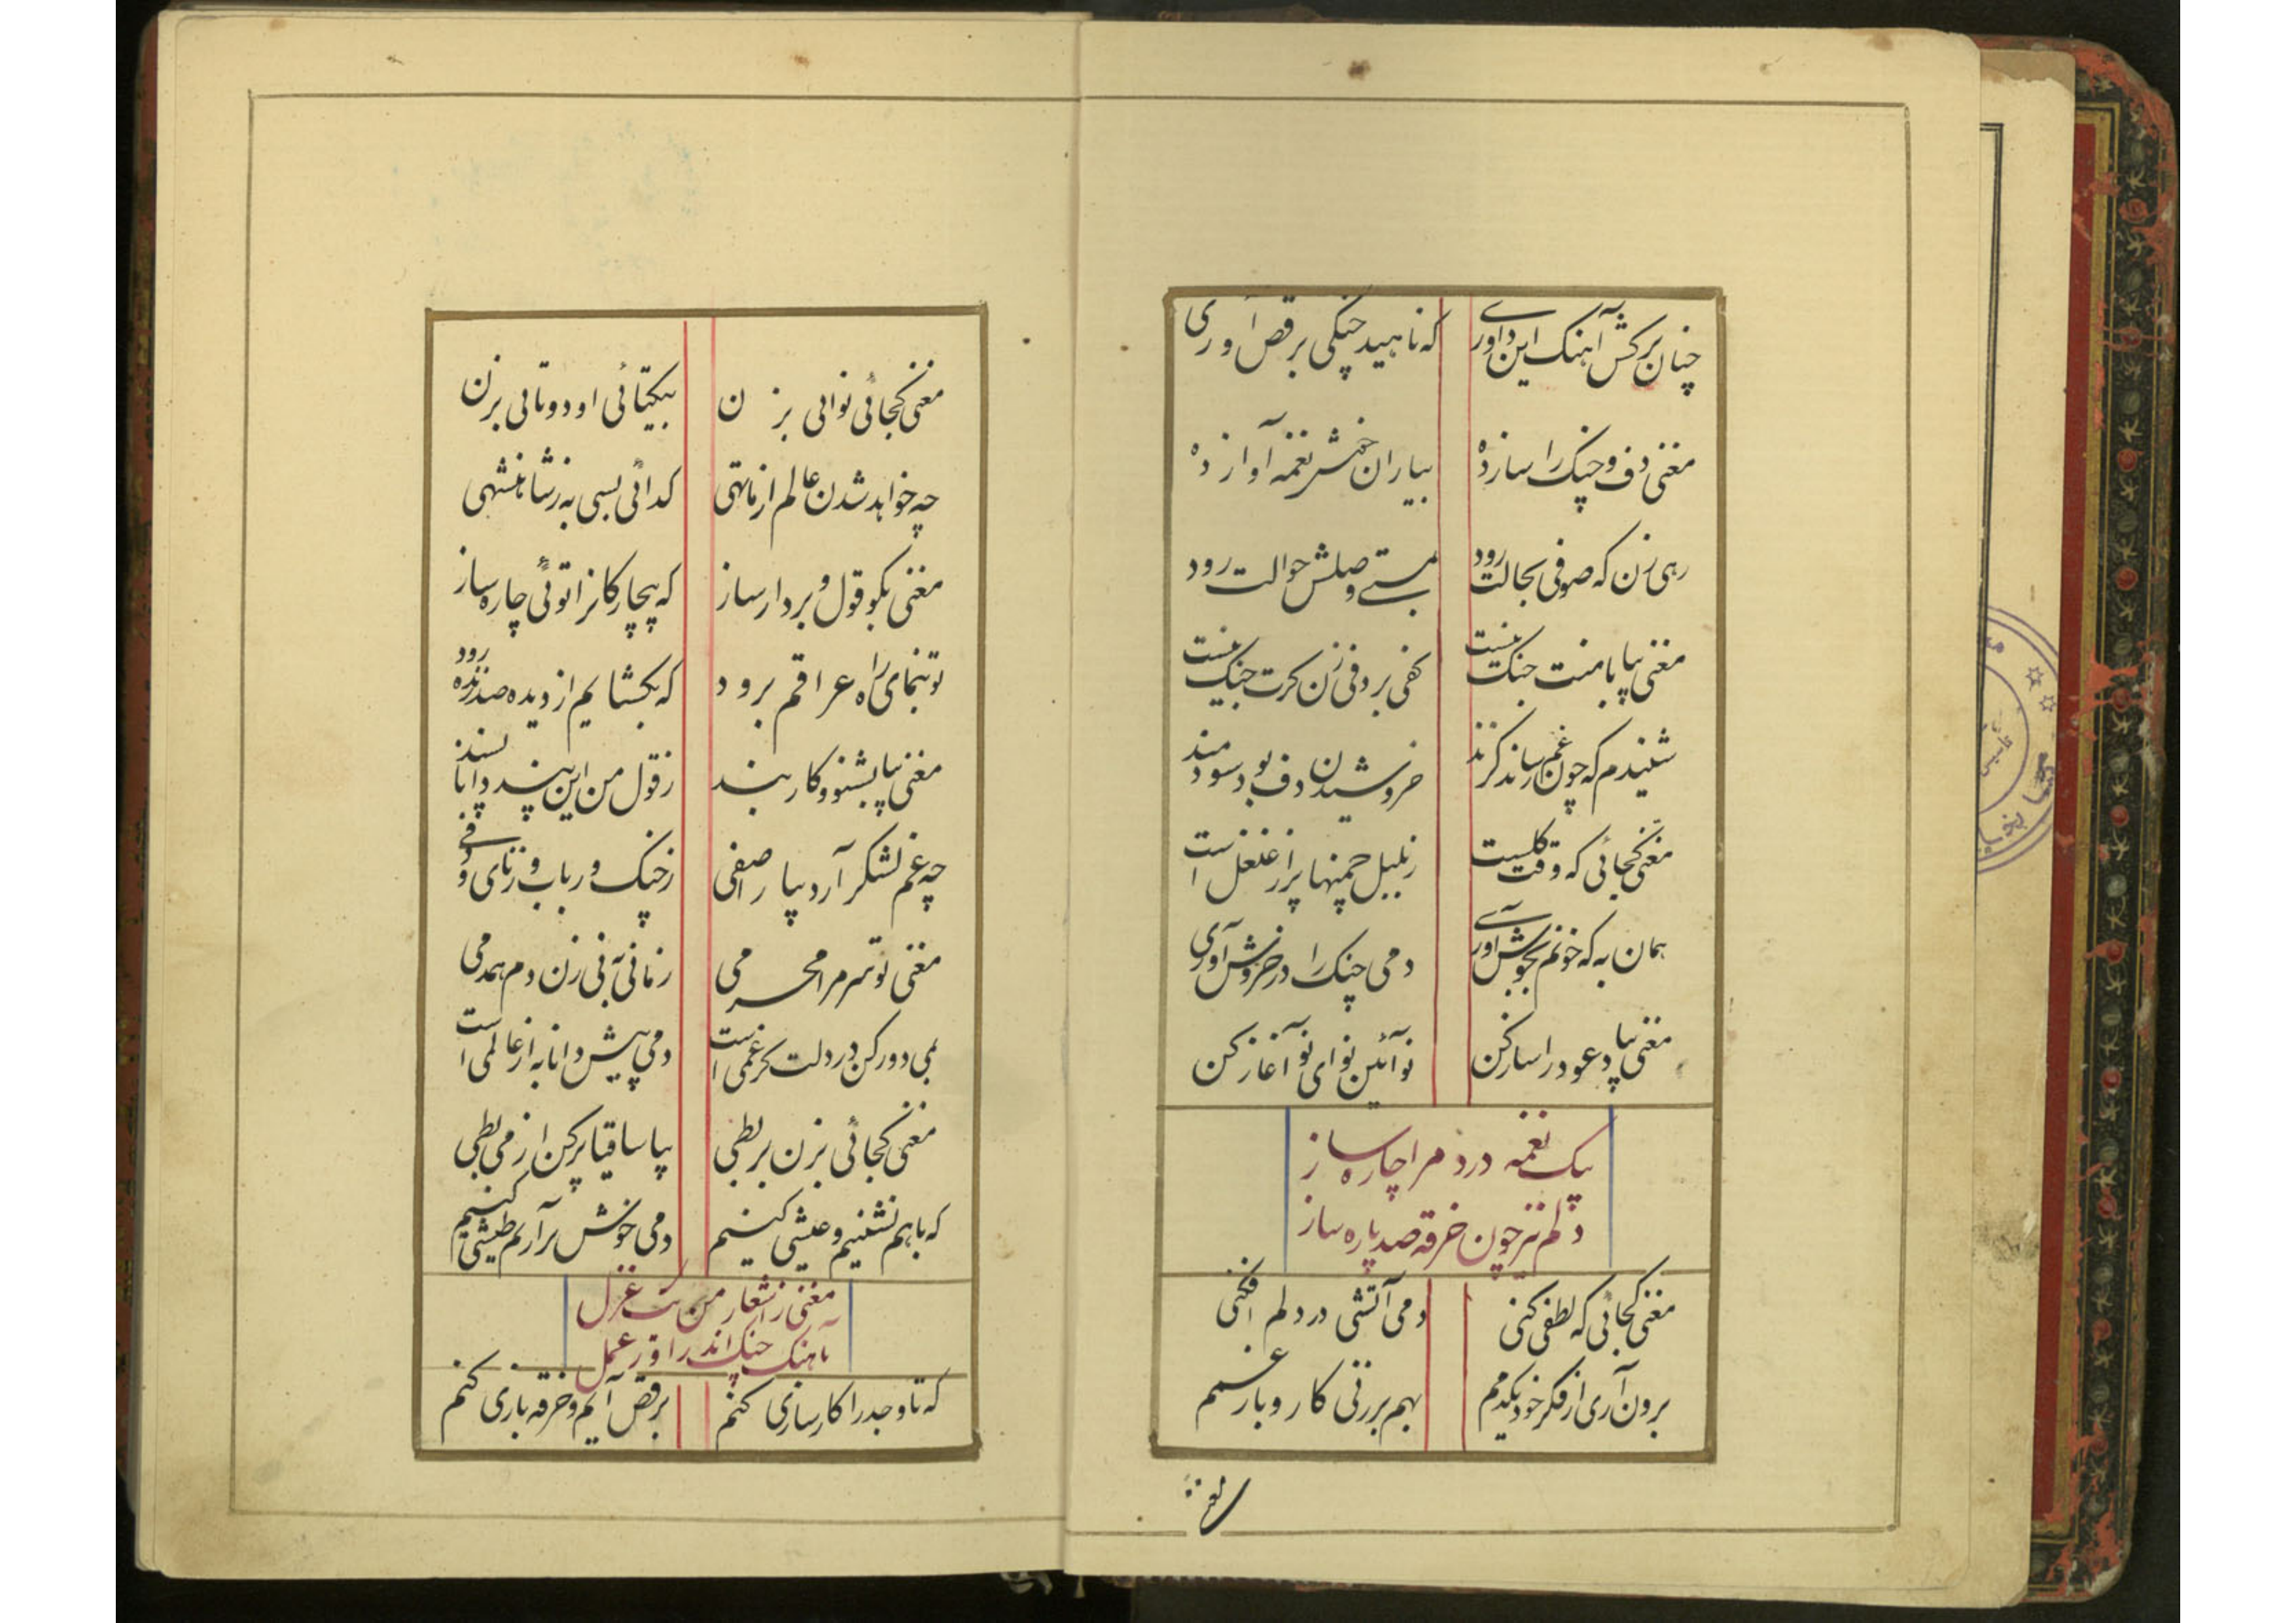 چنان برکش آهنک این داوری که ناهید چنکی برقص آوری
مغنی دف و چنک را ساز ده بیاران خوش نغمه آواز ده
رهی زن که صوفی بحالت رود بمستی وصلش حوالت رود
مغنی بیا با منت جنک نیست کفی بر دفی زن کرت چنک نیست
شنیدم که چون غم رساند کزند خروشیدن دف بود سودمند
مغنی کجائی که وقت کلست زبلبل چمنها پر از غلغل است
همان به که خونم بجوش آوری دمی چنک را در خروش آوری
مغنی بیا عود را ساز کن نو آئین نوای نو آغاز کن
بیک نغمه درد مرا چاره ساز
دلم نیز چون خرقه صد پاره ساز
مغنی کجائی که لطفی کنی دمی آتشی در دلم افکنی
برون آری از فکر خود یکدمم بهم برزنی کار و بار غمم
مغنی
مغنی کجائی نوائی بزن بیکتائی او دو تائی بزن
چه خواهد شدن عالم از ما تهی کدائی بسی به ز شاهنشهی
مغنی بکو قول و بردار ساز که بیچارکانرا توئی چاره ساز
تو بنمای راه عراقم برود که بکشایم از دیده صد زنده رود
مغنی بیا بشنو و کار بند ز قول من این پند دانا پسند
چه غم لشکر آرد بیارا صفی ز چنک و رباب و ز نای و دفی
مغنی تو سر مرا محرمی زمانی به نی زن دم همدمی
بمی دور کن در دلت کر غمی است دمی پیش دانا به از عالمی است
مغنی کجائی بزن بربطی بیا ساقیا پر کن از می بطی
که با هم نشنیم و عیشی کنیم دمی خوش برآریم طیشی کنیم
مغنی ز اشعار من یک غزل
بآهنک چنک اندر اور عمل
که تا وجد را کارسازی کنم برقص آیم و خرقه بازی کنم